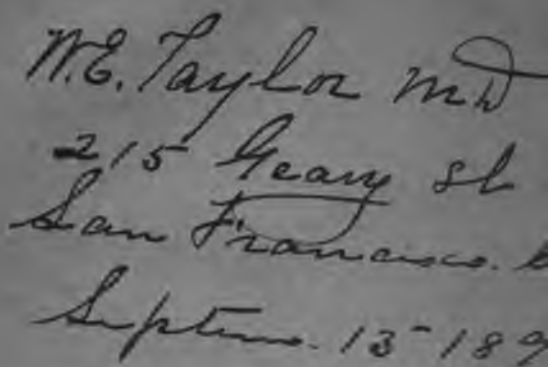 W.E. Taylor MD
215 Geary St
San Francisco.
Septem. 13 - 189